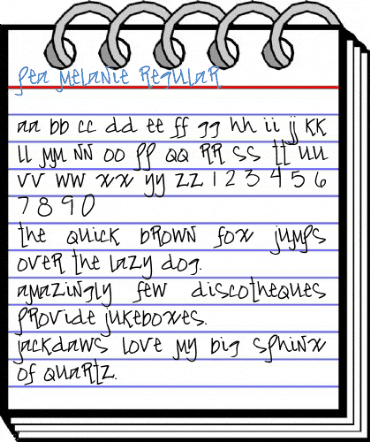 pea Melanie Regular
aa bb cc dd ee ff gg hh ii jj KK
ll MM NN oo pp QQ RR ss tt uu
vv ww xx yy zz 1 2 3 4 5 6
7 8 9 0
the quick brown fox jumps
over the lazy dog.
amazingly few discotheques
provide jukeboxes.
jackdaws love my big sphinx
of quartz.